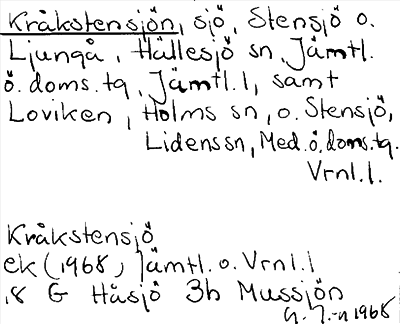 Kråkstensjön, sjö, Stensjö o.
Ljungå, Hällesjö sn, Jämtl.
ö. doms.tg, Jämtl.l, samt
Loviken, Holms sn, o. Stensjö,
Lidens sn, Med.ö.doms.tg.
Vrnl.l.
Kråkstensjö
ek (1968) Jämtl. o. Vrnl.l
18 G Håsjö 3h Mussjön
1968